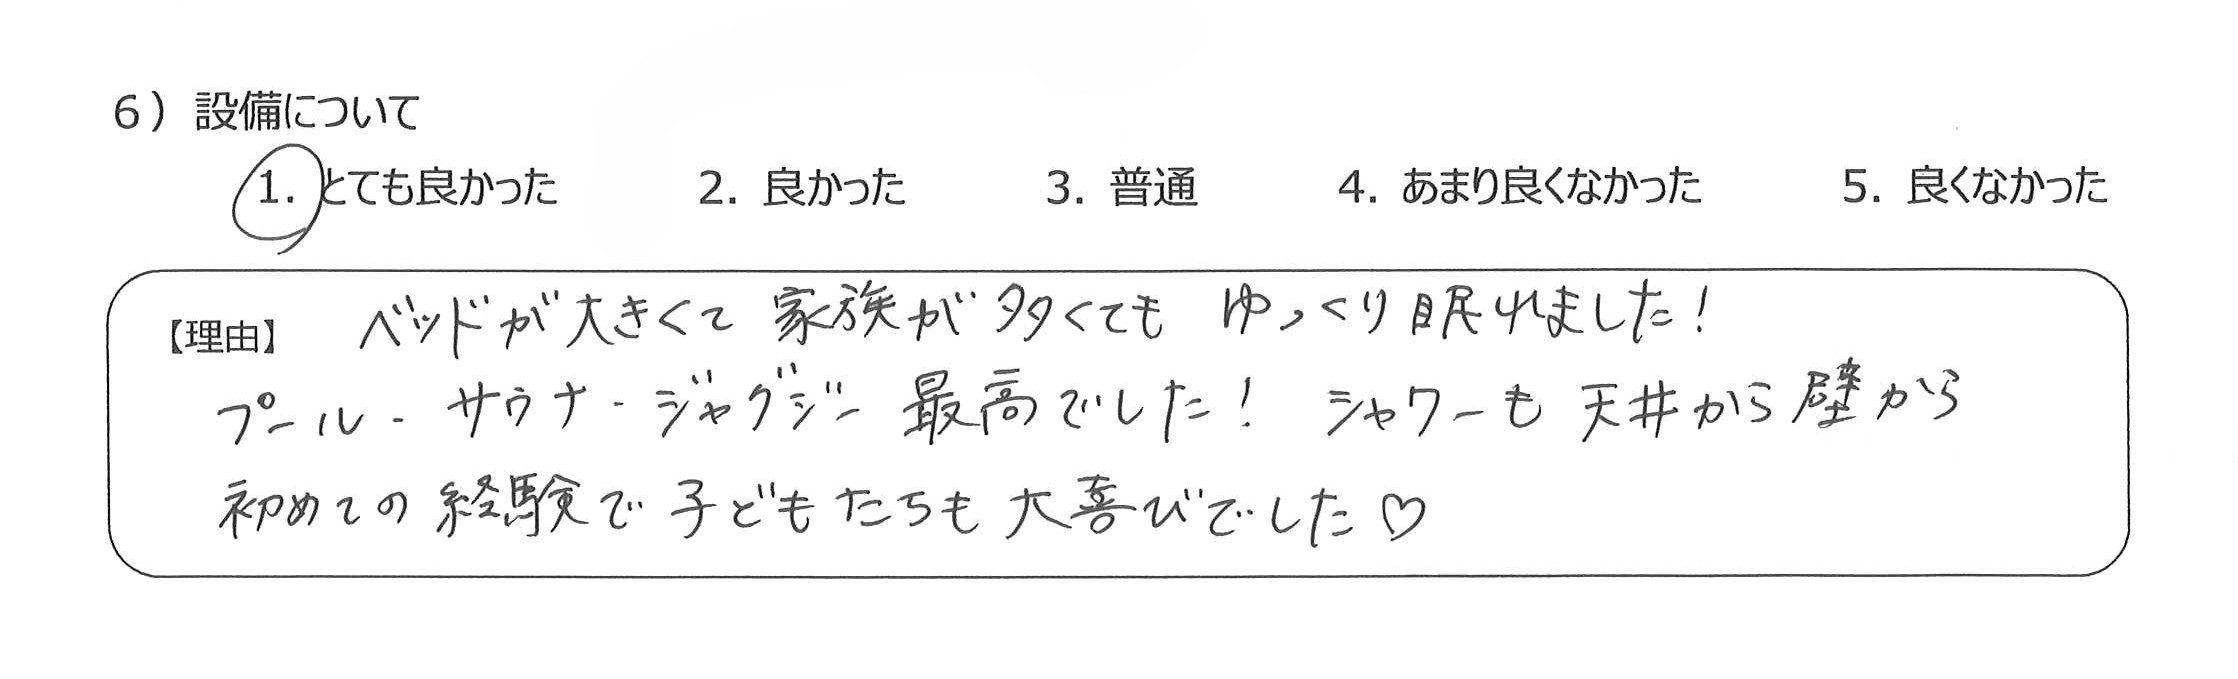 6）設備について
1. とても良かった 2. 良かった 3. 普通 4. あまり良くなかった 5. 良くなかった
【理由】 ベッドが大きくて 家族が多くても ゆっくり眠れました！
プール・サウナ・ジャグジー 最高でした！ シャワーも 天井から壁から
初めての経験で 子どもたちも大喜びでした♡